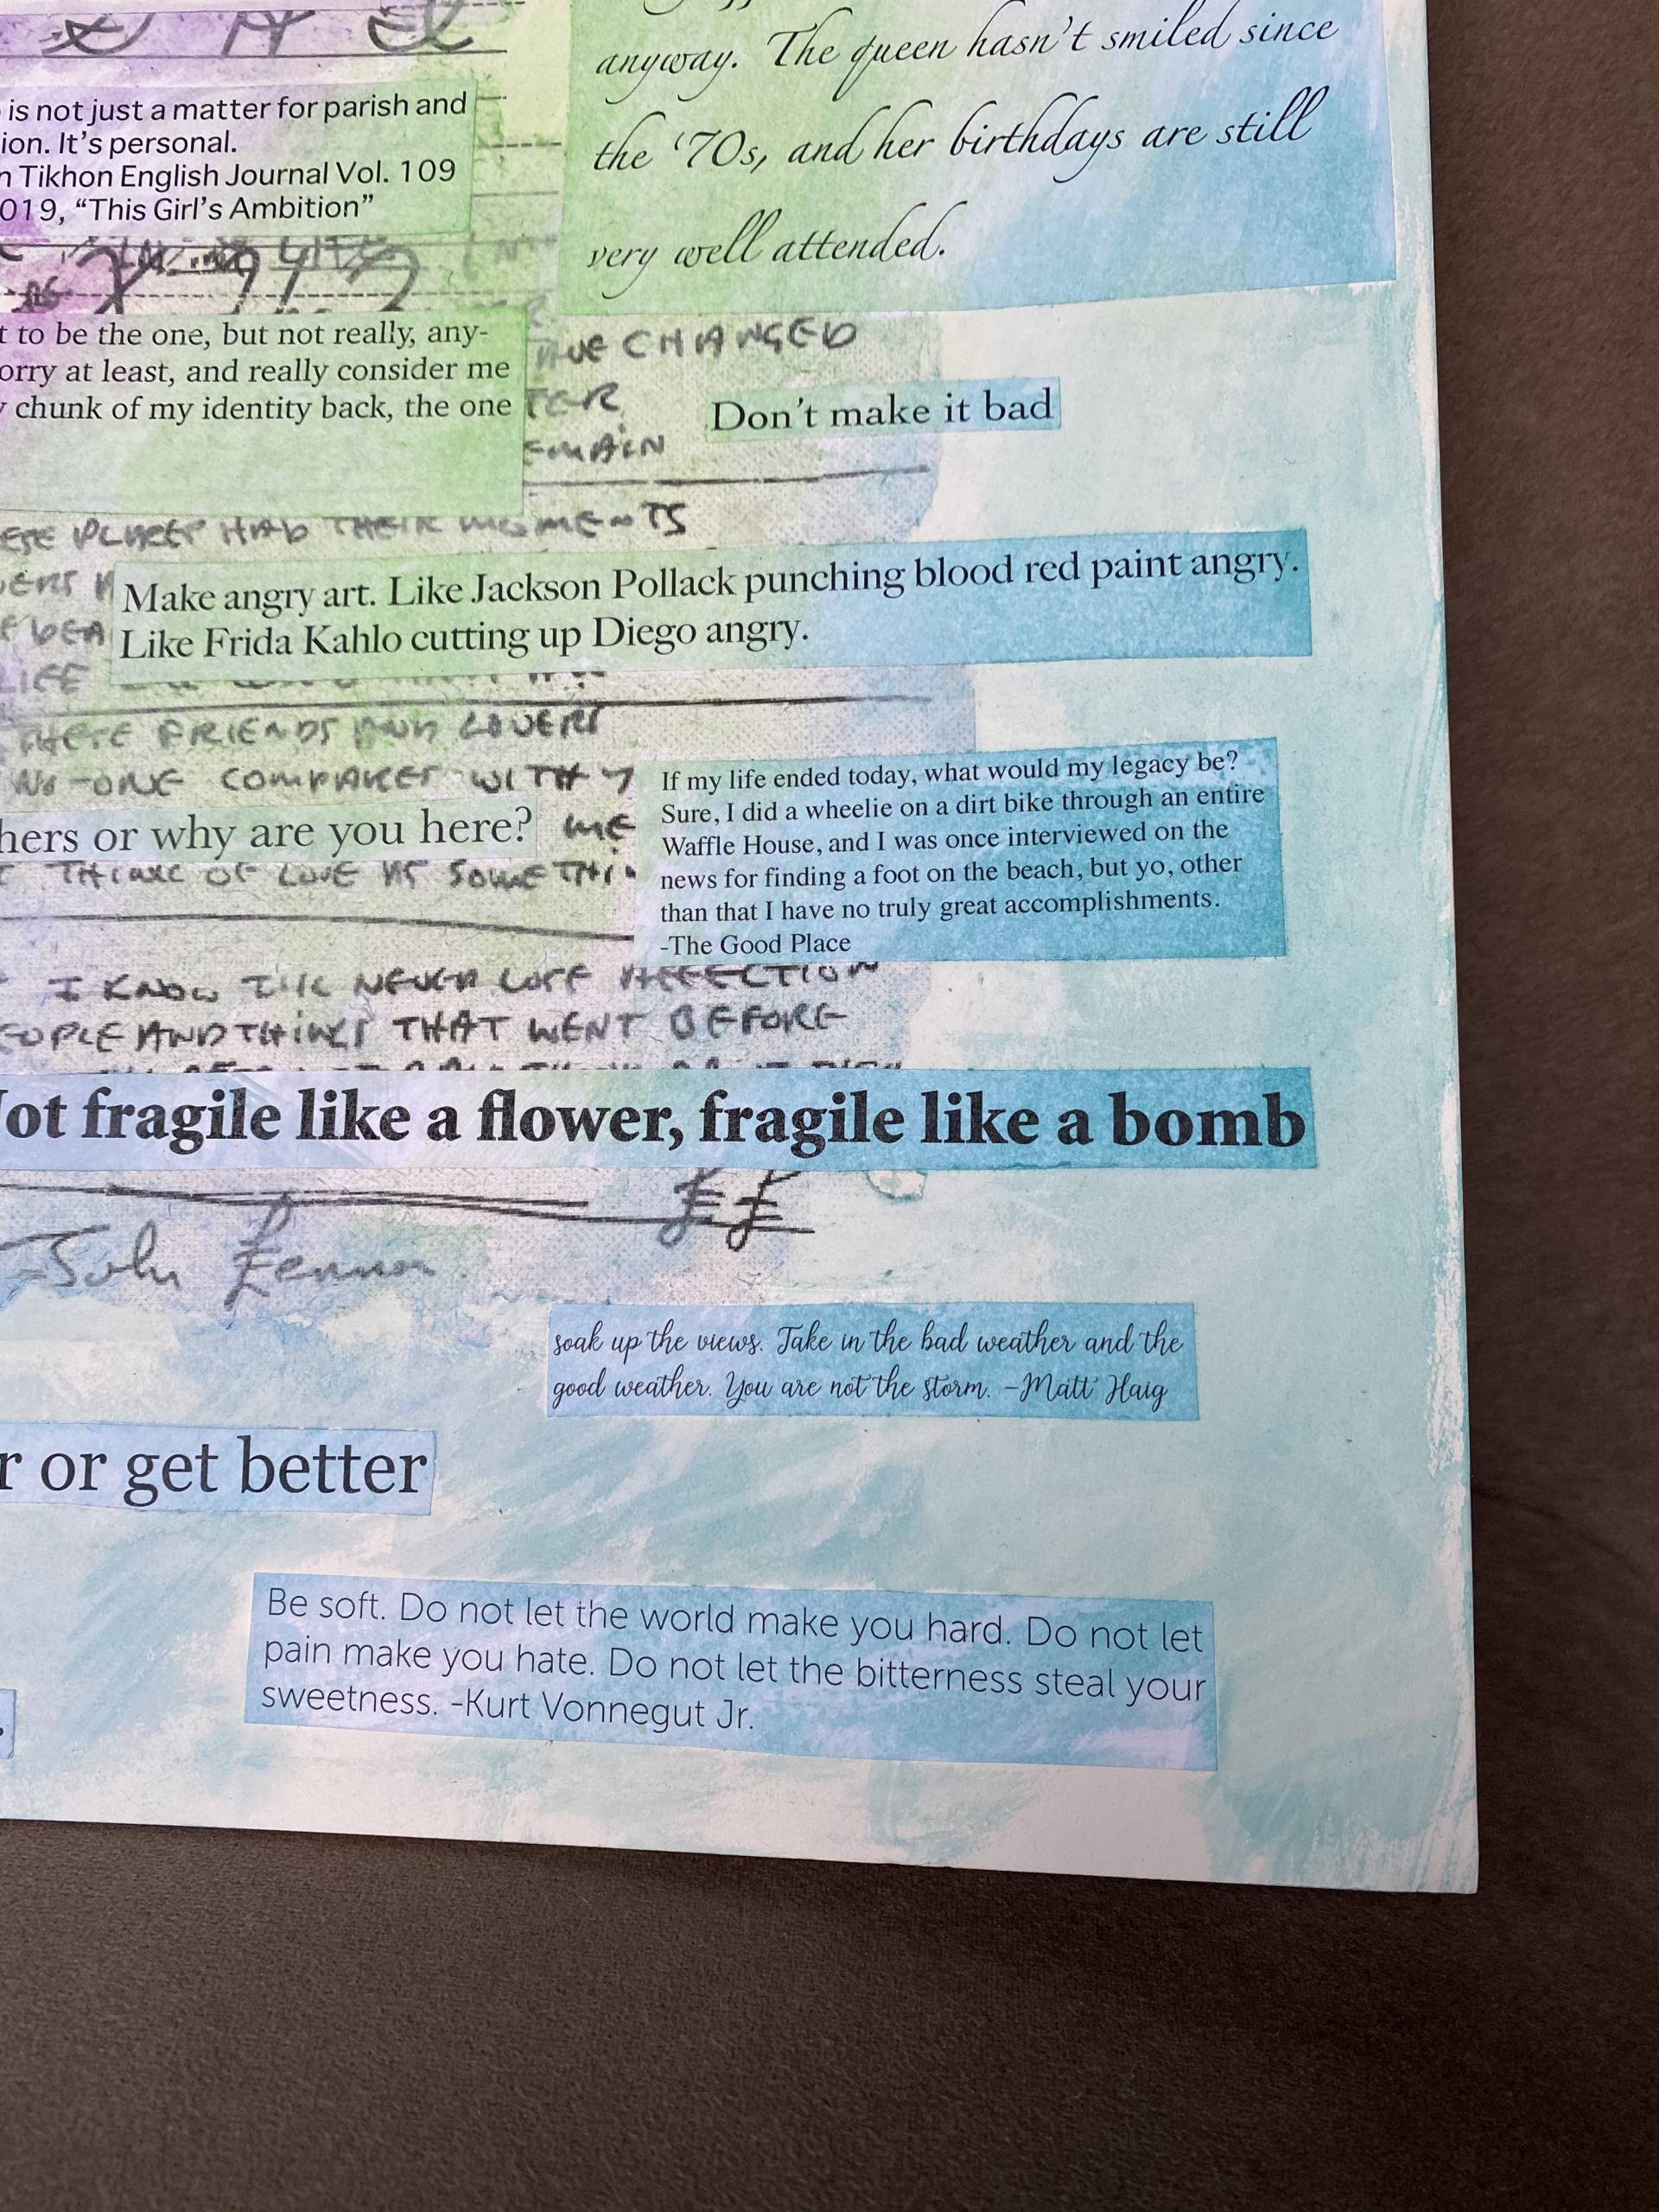 anyway. The queen hasn't smiled since
the '70s, and her birthdays are still
very well attended.
is not just a matter for parish and
ion. It's personal.
n Tikhon English Journal Vol. 109
019, "This Girl's Ambition"
t to be the one, but not really, any-
orry at least, and really consider me
chunk of my identity back, the one
CHANGED
Don't make it bad
EMAIN
HAD THEIR MOMENTS
Make angry art. Like Jackson Pollack punching blood red paint angry.
Like Frida Kahlo cutting up Diego angry.
LIFE
THESE FRIENDS AND LOVERS
NO-ONE COMPARES WITH Y
If my life ended today, what would my legacy be?
Sure, I did a wheelie on a dirt bike through an entire
Waffle House, and I was once interviewed on the
news for finding a foot on the beach, but yo, other
than that I have no truly great accomplishments.
-The Good Place
hers or why are you here?
ME
THINK OF LOVE AS SOMETHI
I KNOW I'LL NEVER LOSE AFFECTION
EOPLE AND THINGS THAT WENT BEFORE
ot fragile like a flower, fragile like a bomb
John Lennon
soak up the views. Take in the bad weather and the
good weather. You are not the storm. -Matt Haig
r or get better
Be soft. Do not let the world make you hard. Do not let
pain make you hate. Do not let the bitterness steal your
sweetness. -Kurt Vonnegut Jr.